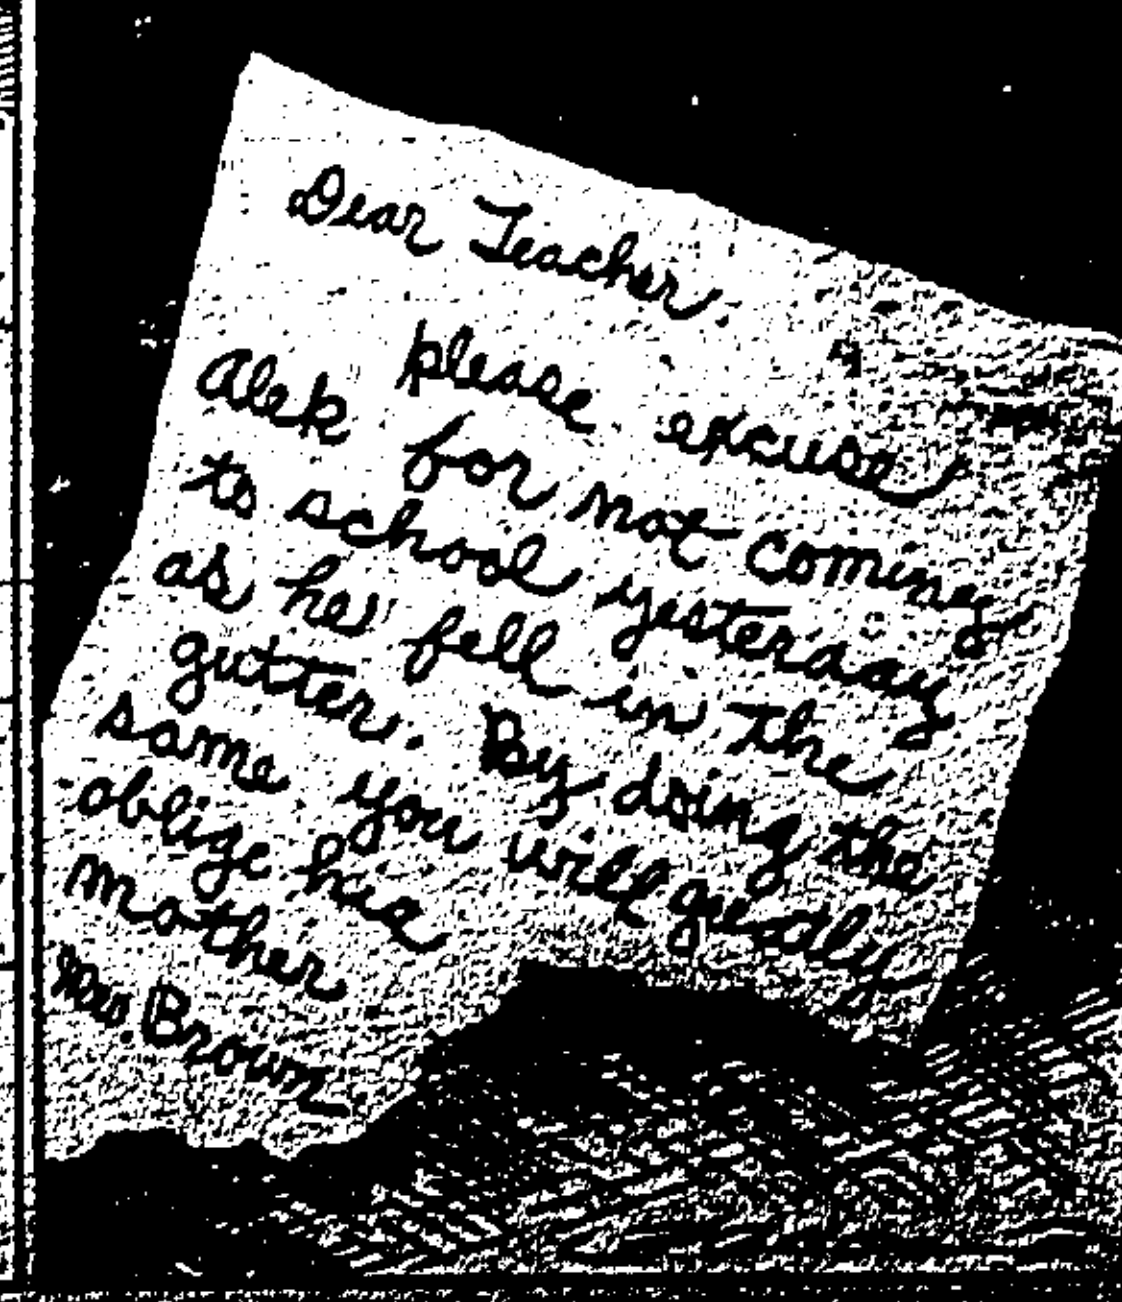 Dear Teacher:
please excuse
Alek for not coming
to school yesterday
as he fell in the
gutter. By doing the
same you will greatly
oblige his
mother
Mrs. Brown